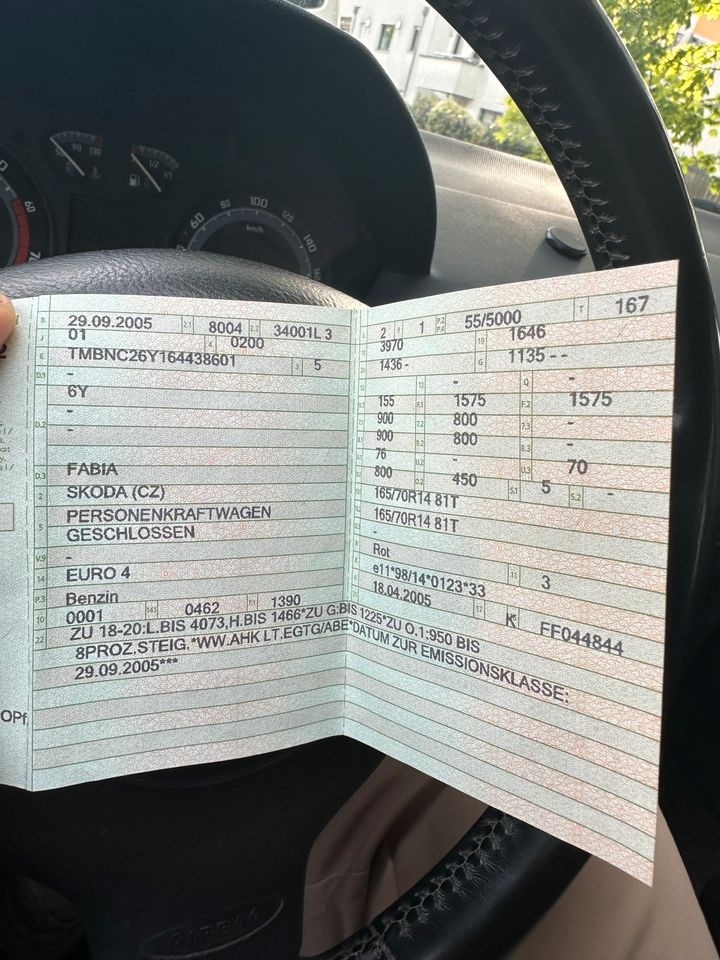 B 29.09.2005 2.1 8004 2.2 34001L 3
J 01 4 0200
E TMBNC26Y164438601 3 5
D.1 -
6Y
-
D.2 -
D.3 FABIA
2 SKODA (CZ)
5 PERSONENKRAFTWAGEN
GESCHLOSSEN
V.9 -
14 EURO 4
P.3 Benzin
10 0001 14.1 0462 P.1 1390
22 ZU 18-20:L.BIS 4073,H.BIS 1466*ZU G:BIS 1225*ZU O.1:950 BIS
8PROZ.STEIG.*WW.AHK LT.EGTG/ABE*DATUM ZUR EMISSIONSKLASSE:
29.09.2005***
2 9 1 P.2 P.4 55/5000 T 167
3970 19 1646
1436 - G 1135 - -
- 13 - Q -
155 F.1 1575 F.2 1575
900 7.2 800 7.3 -
900 8.2 800 8.3 -
76 U.2 - 70
800 O.2 450 S.1 5 S.2 -
165/70R14 81T
165/70R14 81T
-
Rot 11 3
e11*98/14*0123*33
18.04.2005 17 K FF044844
OPf
50 90 130
1/2 1/1
60 70
60 80 100 120 140
km/h
AIRBAG